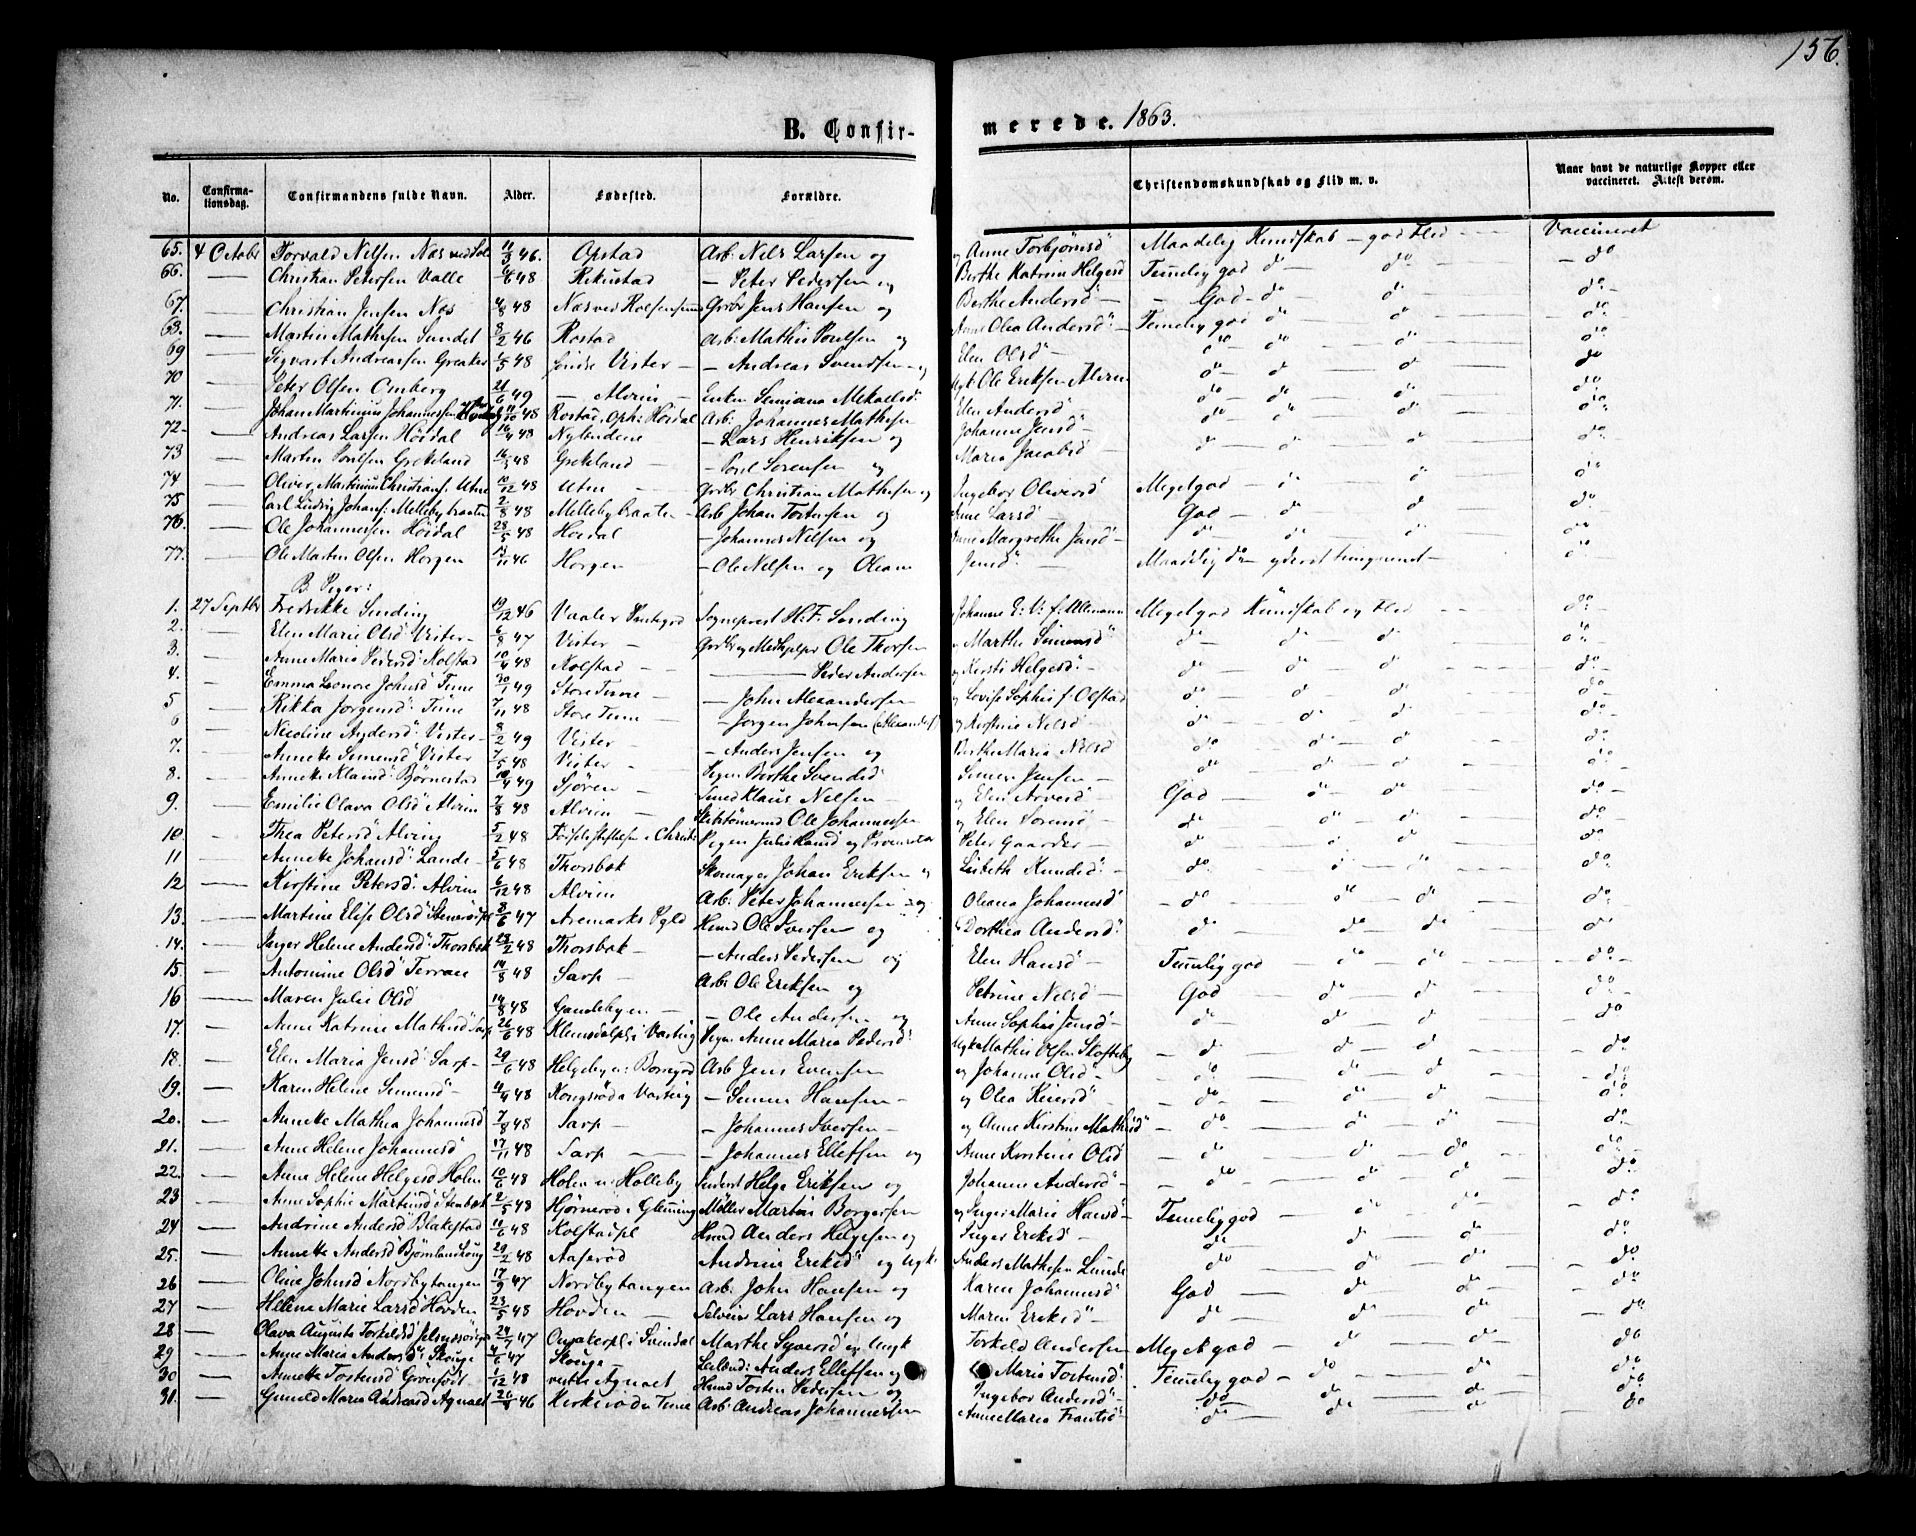 156.
B. Confirmerede. 1863.
No. Confirmationsdag. Confirmandens fulde Navn. Alder. Fødested. Forældre. Christendomskundskab og Flid m. v. Naar havt de naturlige Kopper eller vaccineret. Attest derom.
65. 4 October Torvald Nilsen Næs 11/3 46. Opstad Arb: Nils Larsen og Anne Torbjørnsd Maadelig Kundskab - god Flid Vaccineret
66. Christian Petersen Valle 4/6 48 Rikustad - Peter Pedersen og Berthe Katrine Helgesd Temelig god do do do
67. Christian Jensen Næs 4/8 48 Næs ved Rolfsøsund Grdbr Jens Hansen og Berthe Andersd - God - do do do
68. Martin Mathisen Sundet 8/2 46 Rostad Arb: Mathis Poulsen og Anne Olea Andersd Temelig god do do do
69 Sigvart Andreassen Greaker 1/5 48 Søndre Vister - Andreas Svendsen og Elen Olsd do do do do
70 Peter Olsen Omberg 21/6 49 - Alvim Enken Simiana Mekaelsd Ugk: Ole Eriksen Alvim do do do do
71. Johan Martinius Johannessen 11/10 48 Rostad, Oph: Høidal Arb: Johannes Mathisen Elen Andersd do do do do
72 Andreas Larsen Høidal 16/4 48 Nylandene - Lars Henriksen og Johanne Jensd do do do do
73 Martin Poulsen Grekeland 16/3 48 Grekeland - Poul Sørensen og Maria Jacobsd do do do do
74 Oliver Martinius Christians: Utne 10/12 48 Utne Grdbr Christian Mathisen og Ingebor Oliversd Meget god do do do
75 Carl Ludvig Johans: Mellebybraaten 2/8 48 Mellebybraaten Arb Johan Torstensen og Anne Larsd God do do do
76. Ole Johannessen Høidal 28/5 48 Høidal - Johannes Nilsen og Anne Margrethe Jensd do do do do
77. Ole Martin Olsen Horgen 13/11 46 Horgen - Ole Nilsen og Oleane Jensd Maadelig do yderst tungnemt do
B. Piger:
1. 27 Septbr Fredrikke Sinding 19/12 46 Vaaler Præstegrd Sogneprest H. F. Sinding Johanne E: V: f: Ullemann Meget god Kundskab og Flid do
2. Elen Marie Olsd Vister 6/8 47 Vister Grdbr og Medhjelper Ole Thorsen og Marthe Simensd do do do do
3. Anne Maria Pedersd Kolstad 10/4 48 Kolstad Peder Andersen og Kersti Helgesd do do do do
4. Emma Lenore Johnsd Tune 30/1 49 Store Tune - John Alexandersen og Lovise Sophie f. Olstad do do do do
5 Rikka Jørgensd Tune 7/11 48 Store Tune - Jørgen Johnsen (Alexanders) og Kirstine Nilsd do do do do
6 Nicoline Andersd Vister 8/2 49 Vister - Anders Jensen og Berthe Maria Nilsd do do do do
7. Annete Simensd Vister 7/5 48 Vister Pigen Berthe Svendsd Simen Jensen do do do do
8. Annette Klausd Bjørnestad 10/4 49 Sjøren Smed Klaus Nilsen og Elen Arvesd God do do do
9. Emilie Olava Olsd Alvim 7/8 48 Alvim Skibstømmermd Ole Johannessen og Elen Sørensd do do do do
10. Thea Petersd Alvim 5/2 48 Fødselsstiftelsen i Christi: Pigen Julie Lund og Provensioner Peter Gaarder do do do do
11 Annette Johansd Lande 5/6 48 Thorsbæk Skomager Johan Eriksen og Lisbeth Knudsd do do do do
12 Kirstine Petersd Alvim 6/12 48 Alvim Arb: Peter Johannessen og Oleana Johannesd do do do do
13. Martine Elise Olsd 8/6 47 Aremarks Pgld Husmd Ole Iversen og Dorthea Andersd do do do do
14. Inger Helene Andersd Thorsbæk 23/2 48 Thorsbæk - Anders Pedersen og Elen Hansd Temelig god do do do
15. Antonine Olsd Terran 14/8 48 Sarp Arb: Ole Eriksen og Petrine Nilsd God do do do
16 Maren Julie Olsd 14/8 48 Gamlebyen - Ole Andersen og Anne Sophie Jensd do do do do
17. Anne Katrine Mathisd Sarp 26/6 48 Klemsdalpl: i Varteig Pigen Anne Maria Pedersd Ugk Mathis Olsen Skofteby do do do do
18. Elen Maria Jensd Sarp 29/6 48 Helgeby u: Borregrd Arb Jens Evensen og Johanne Olsd do do do do
19. Karen Helene Simensd 4/4 48 Kongsrød i Varteig - Simen Hansen og Olea Keiersd do do do do
20. Annette Mathea Johannesd 7/8 48 Sarp - Johannes Iversen og Anne Kirstine Mathisd do do do do
21. Anne Helene Johannesd 17/11 48 Sarp - Johannes Ellefsen og Anne Kirstine Olsd do do do do
22. Anne Helene Helgesd Holm 10/6 48 Holm u: Holleby Inderst Helge Eriksen og Johanne Andersd do do do do
23 Anne Sophie Martinsd Stenbæk 2/5 48 Hjørnerød i Glemmig Møller Martin Borgersen og Inger Maria Hansd Temelig god do do do
24 Andrine Andersd Blakestad 10/6 48 Kolstadpl Husmd Anders Helgesen og Inger Eriksd do do do do
25. Annette Andersd Bjørnlandskoug 29/2 48 Aaserød Andrine Eriksd og Ugk: Anders Mathisen Lunde do do do do
26 Oline Johnsd Nordbytangen 17/9 47 Nordbytangen Arb. John Hansen og Karen Johannesd God do do do
27 Helene Marie Larsd Hovden 23/5 48 Hovden Selveier Lars Hansen og Maren Eriksd do do do do
28 Olava Augusta Torkildsd 24/7 47 i Svindal Marthe Syversd og Ungk Torkeld Andersen Meget god do do do
29 Anne Maria Andersd Skouge 4/6 47 Skouge Leilend: Anders Ellefsen og Maria Torstensd Temelig god do do do
30 Annette Torstensd 1/12 48 vestre Agnalt Husmd Torsten Pedersen og Ingebor Andersd do do do do
31. Gunild Maria Andreasd Agnalt 20/8 46 Kirkerød i Tune Arb: Andreas Johannessen Anne Maria Frantsd do do do do